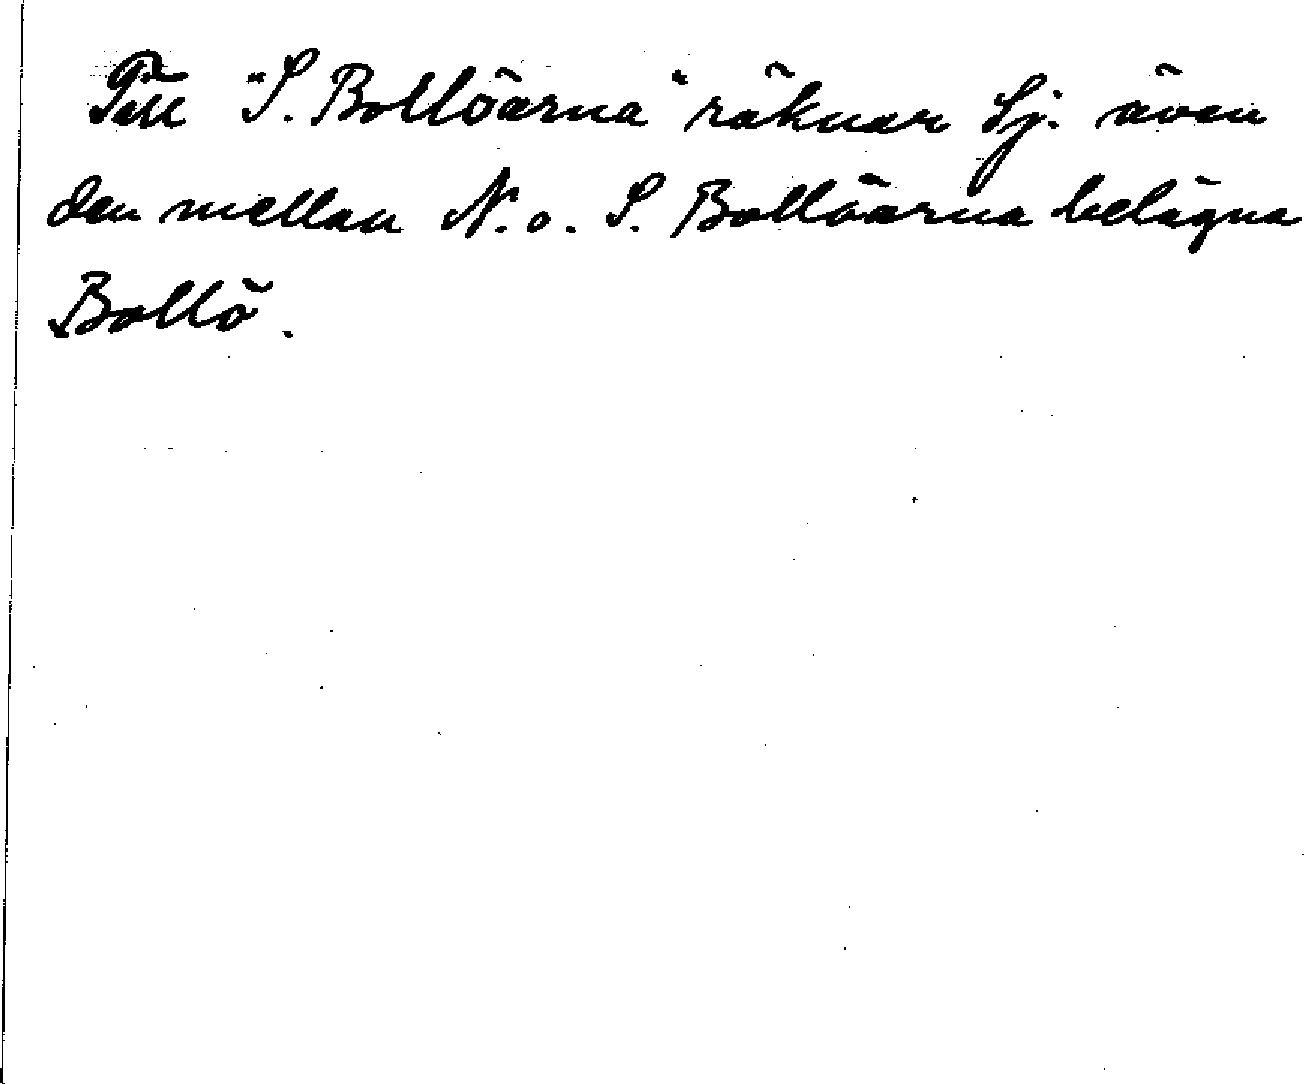 Till "S. Bollöarna" räknar Sj. även
den mellan N. o. S. Bollöarna belägna
Bollö.